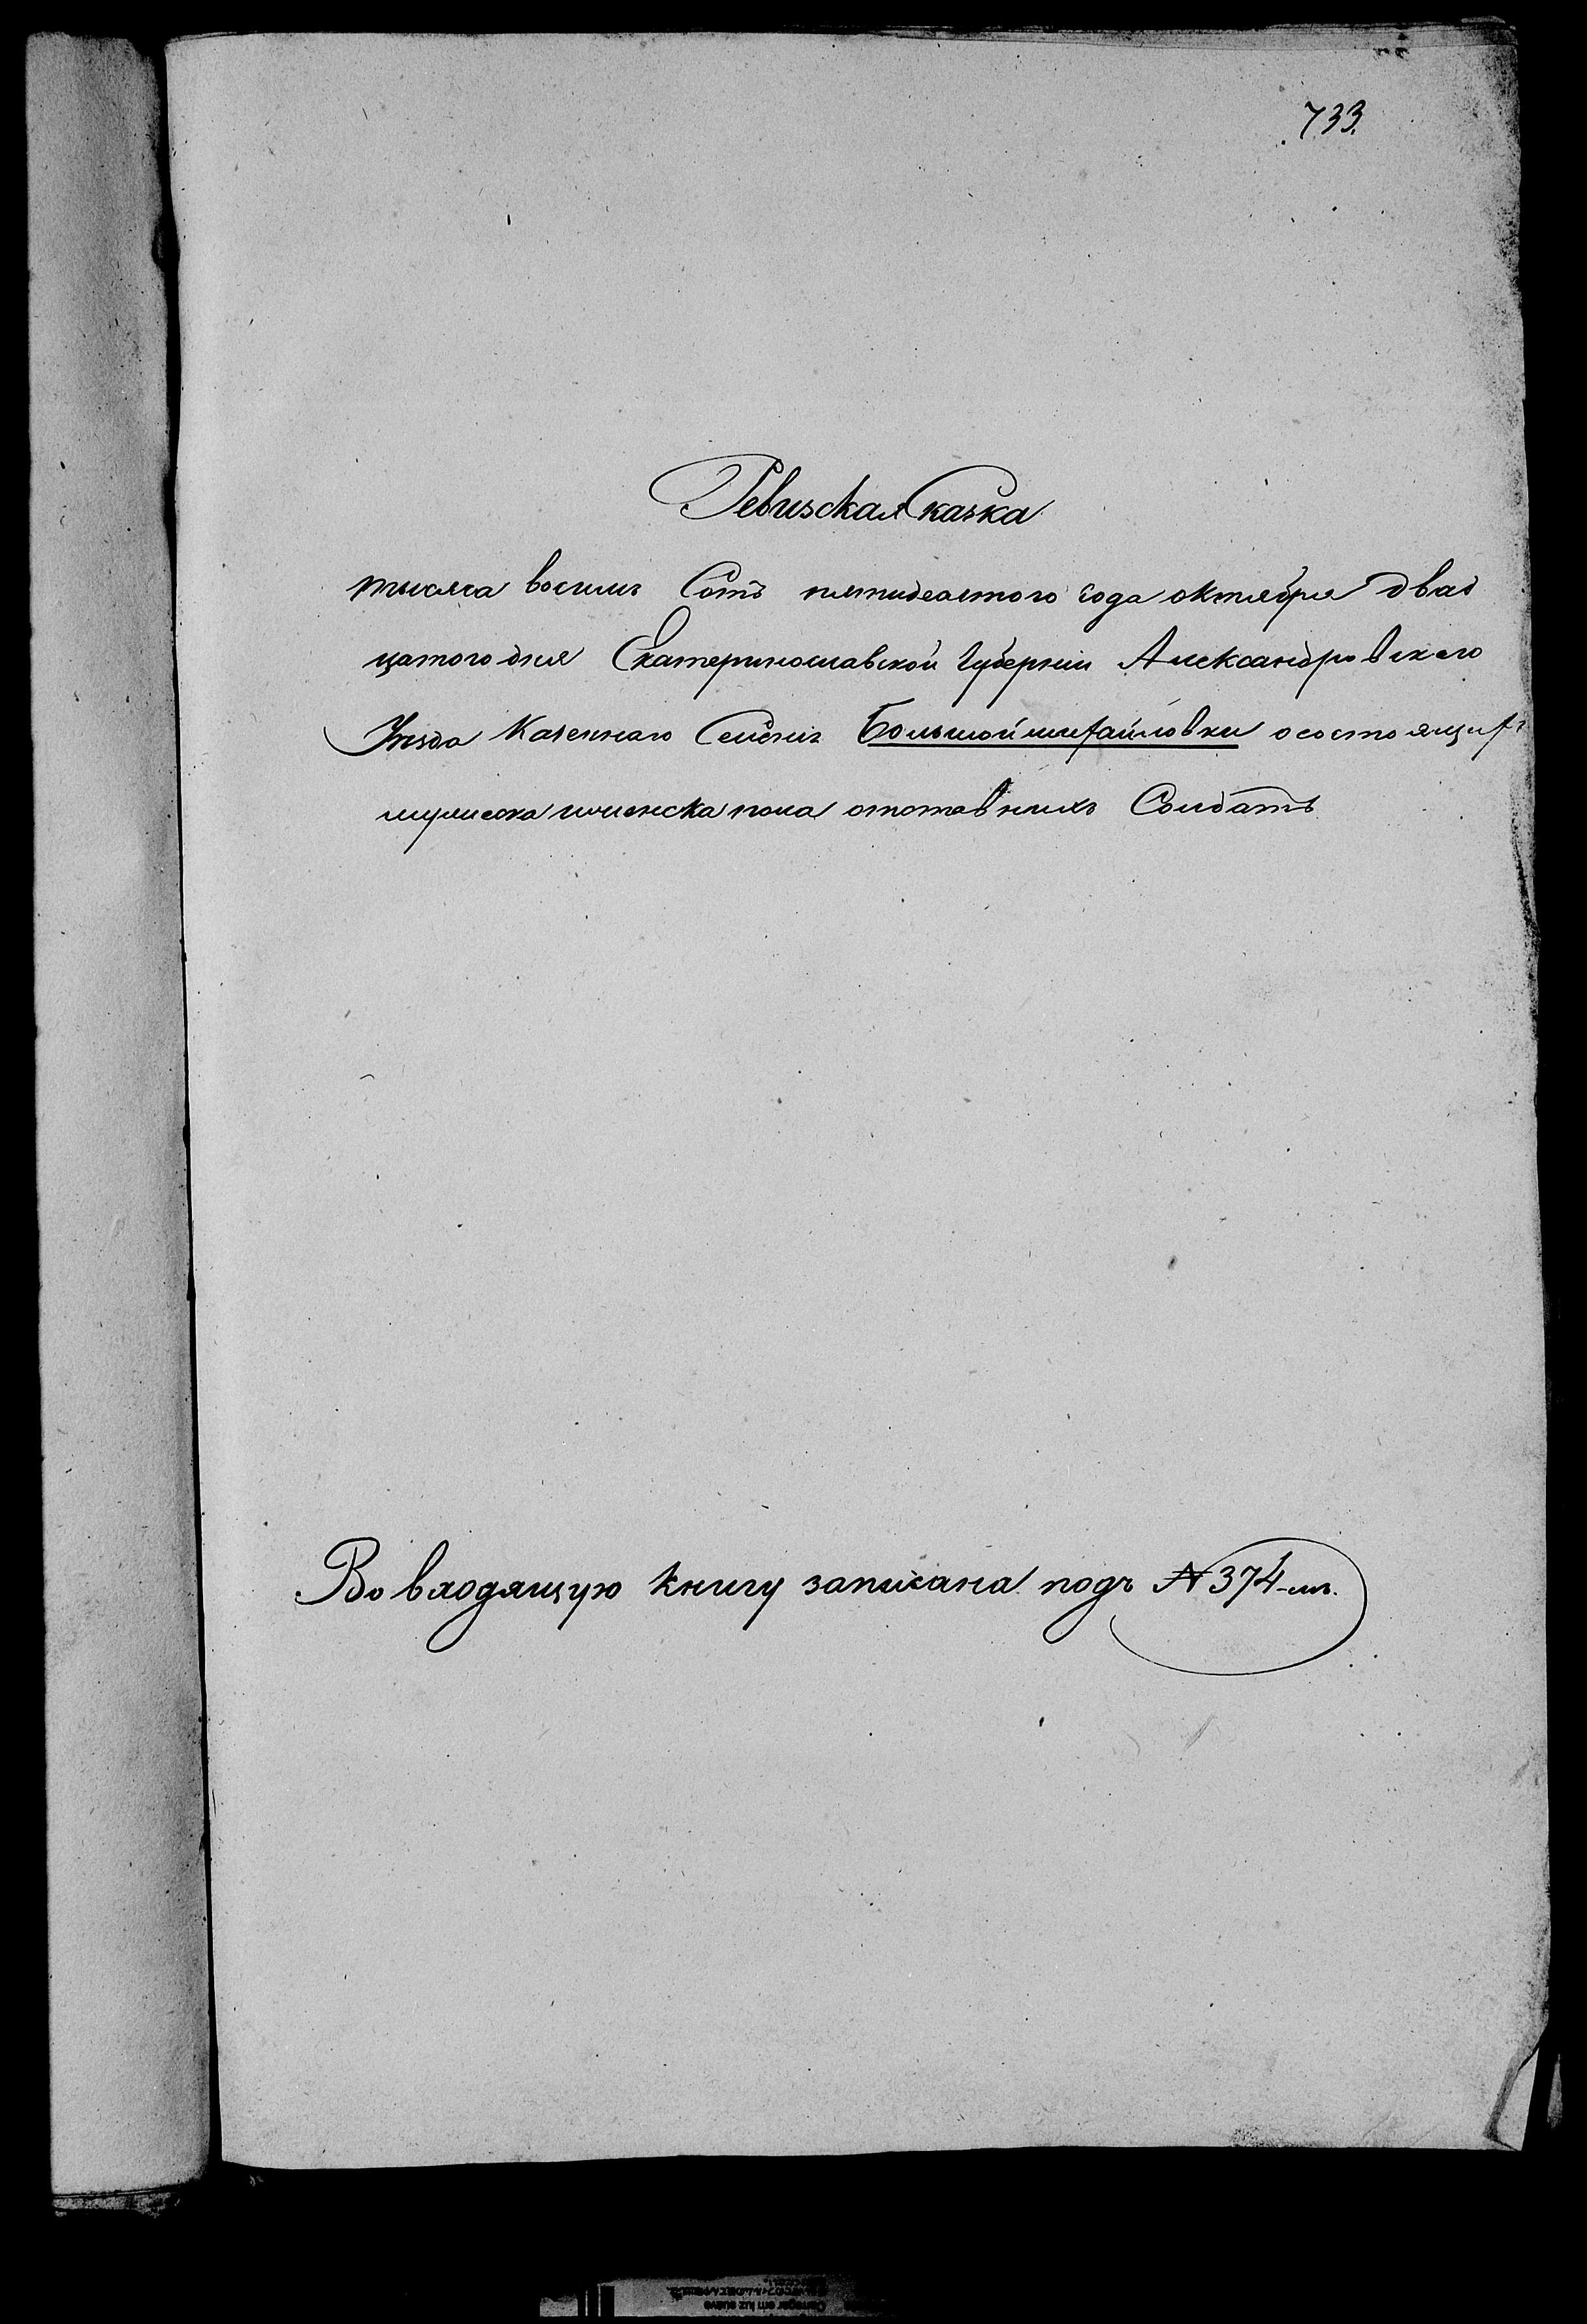 733.
Ревизская Сказка
тысяча восемь Сотъ пятидесятого года октября двад
цатого дня Екатеринославской Губернии Александровского
Уезда Казенного Селения Большой михайловки осостоящихъ
мужеска и женска пола отставныхъ Солдатъ
Во входящую книгу записана подъ № 374-мъ.